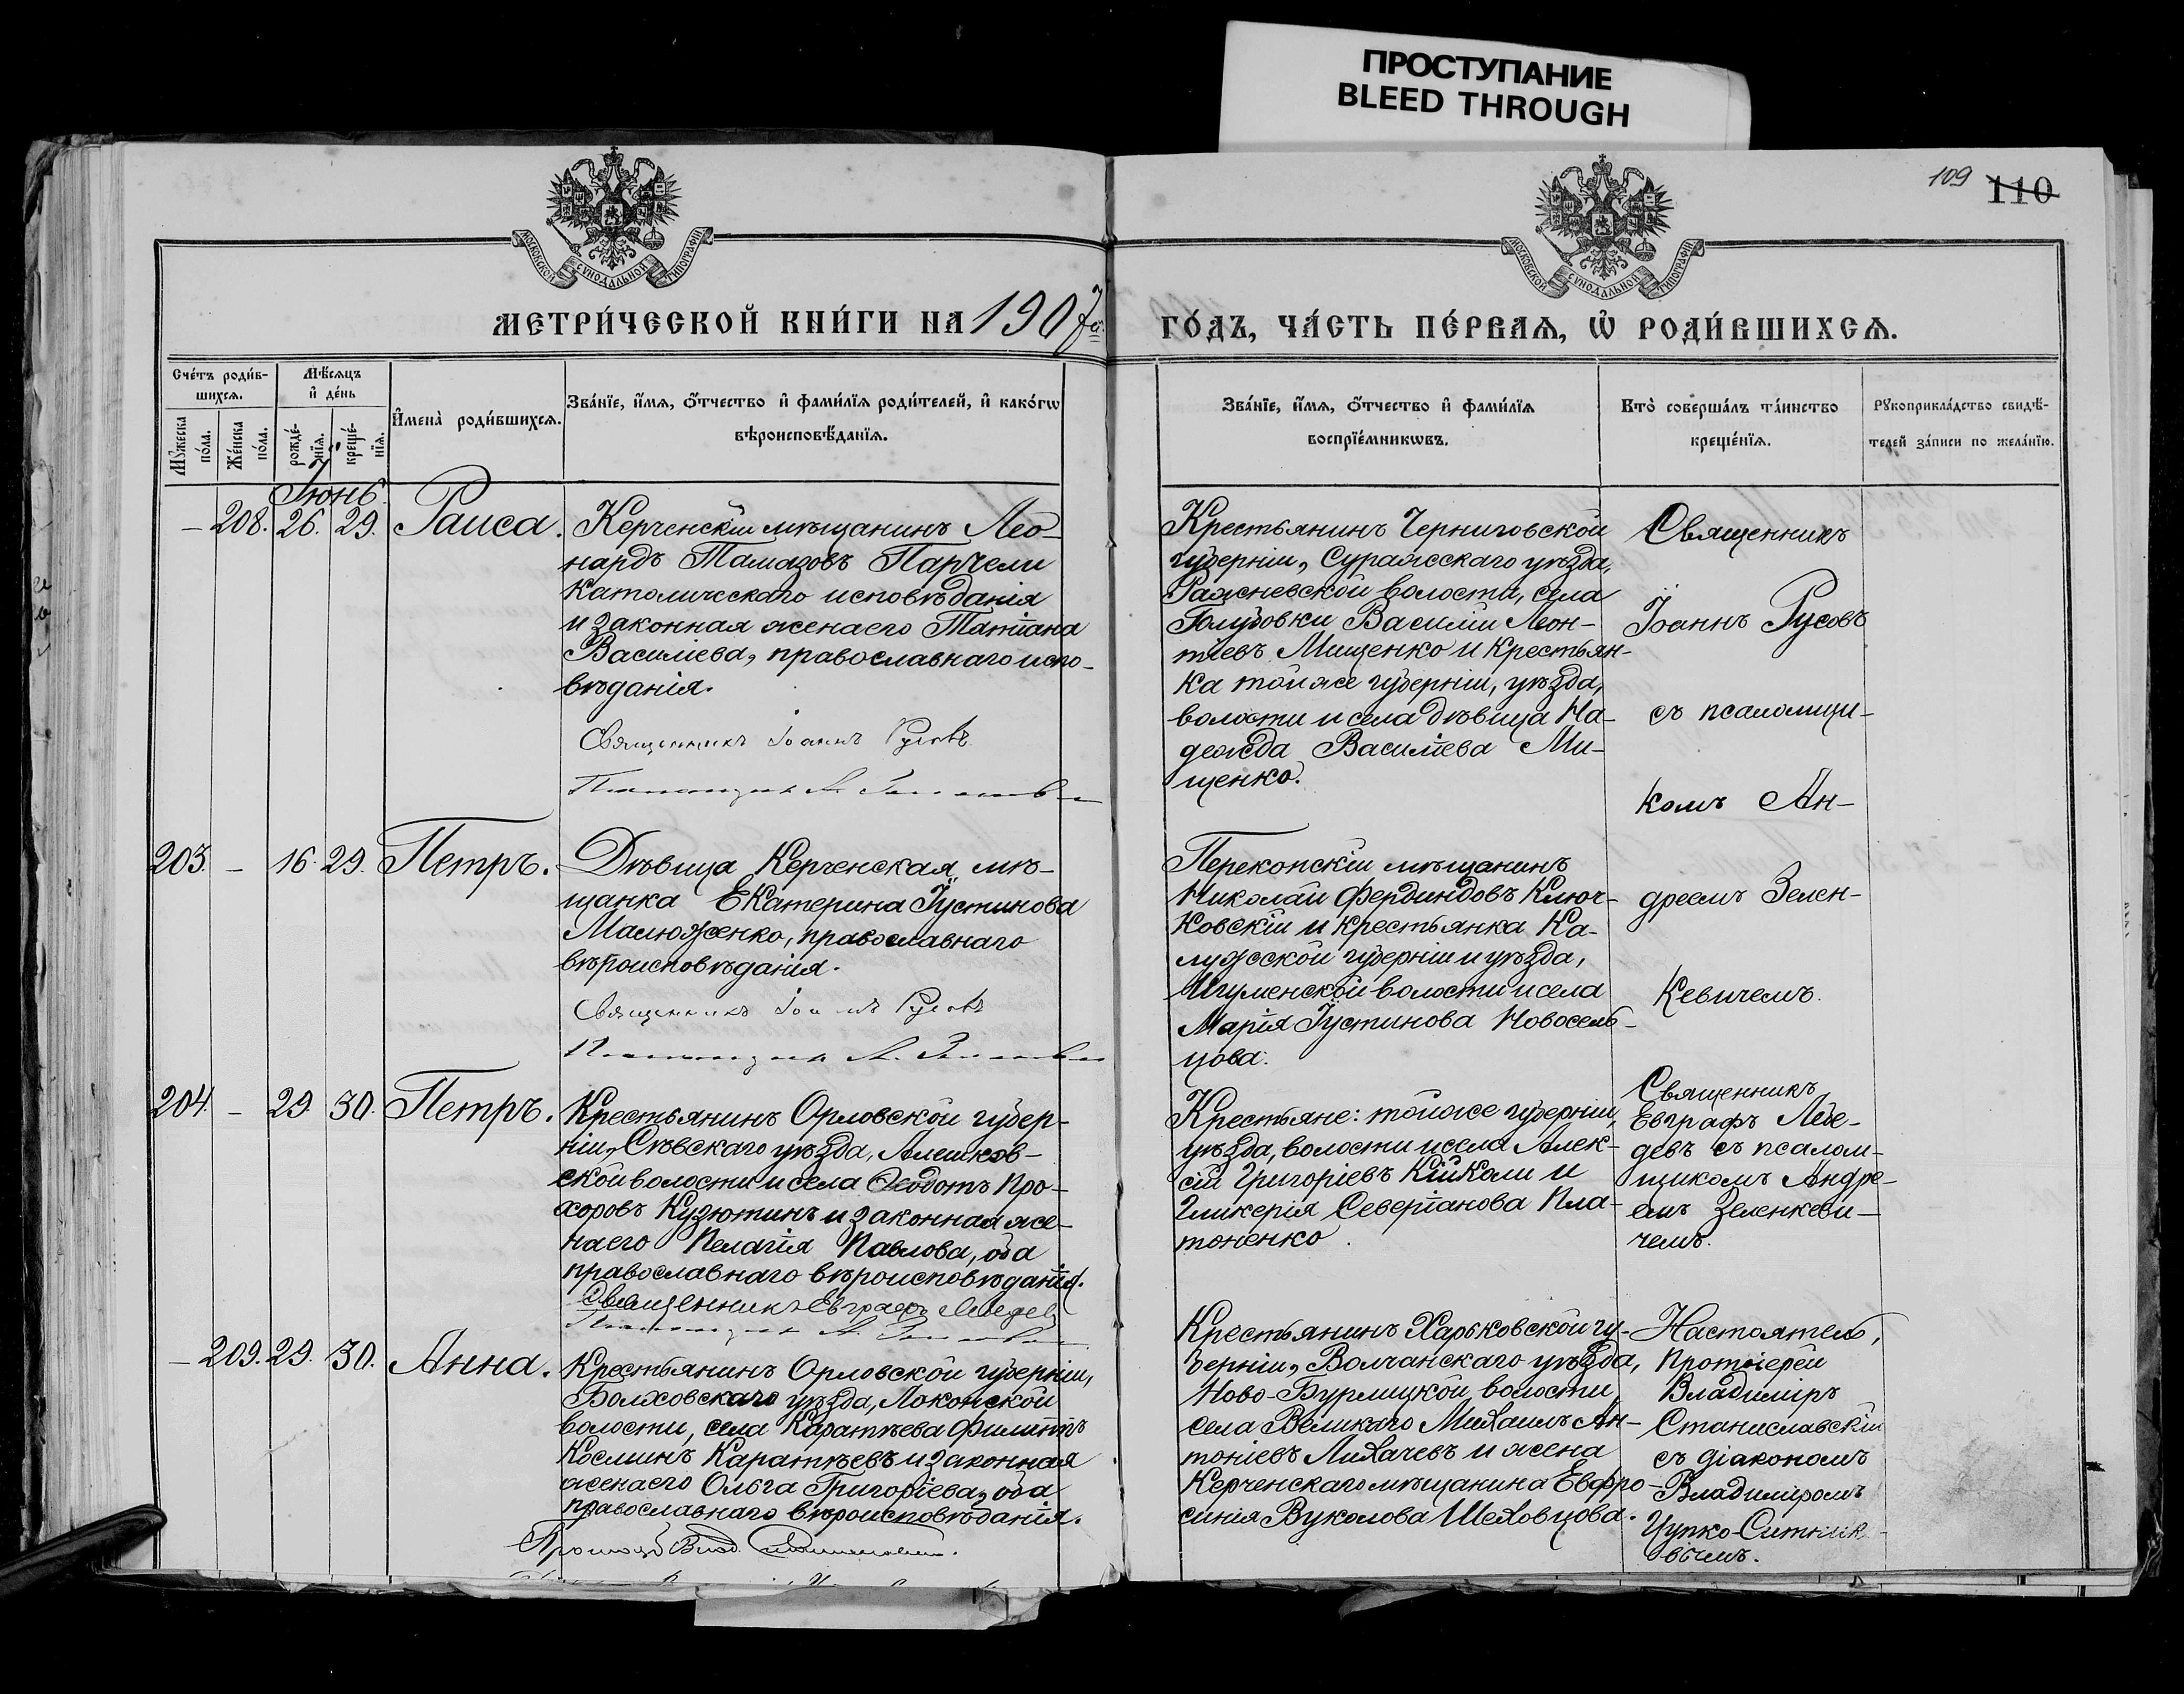 ПРОСТУПАНИЕ
BLEED THROUGH
109 110
МОСКОВСКОЙ СУНОДАЛЬНОЙ ТИПОГРАФІИ
МОСКОВСКОЙ СУНОДАЛЬНОЙ ТИПОГРАФІИ
МЕТРИ́ЧЕСКОЙ КНИ́ГИ НА 1907 г.
ГО́ДЪ, ЧА́СТЬ ПЕ́РВАѦ, Ѡ҆ РОДИ́ВШИХСѦ.
Сче́тъ роди́в-
шихсѧ.
Мѣ́сѧцъ
и҆ де́нь
Мꙋ́жеска
по́ла.
Же́нска
по́ла.
рожде́-
нїѧ.
креще́-
нїѧ.
И҆мена̀ роди́вшихсѧ.
Зва́нїе, и҆́мѧ, ѻ҆́тчество и҆ фами́лїѧ роди́телей, и҆ како́гѡ
вѣроисповѣ́данїѧ.
Зва́нїе, и҆́мѧ, ѻ҆́тчество и҆ фами́лїѧ
воспрїе́мникѡвъ.
Кто̀ соверша́лъ та́инство
креще́нїѧ.
Рꙋкоприкла́дство свидѣ́-
телей за́писи по жела́нїю.
Іюнь.
— 208. 26. 29. Раиса.
Керченскій мѣщанинъ Лео-
нардъ Тамазовъ Парчели
католическаго исповѣданія
и законная жена его Татіана
Василіева, православнаго испо-
вѣданія.
Священникъ Іоаннъ Русовъ
Крестьянинъ Черниговской
губерніи, Суражсскаго уѣзда,
волости, села
Голубовки Василій Леон-
тіевъ Мищенко и крестьян-
ка той же губерніи, уѣзда,
волости и села дѣвица На-
дежда Василіева Ми-
щенко.
Священникъ
Іоаннъ Русовъ
съ псаломщи-
комъ Ан-
дреемъ Зелен-
кевичемъ.
203. — 16. 29. Петръ.
Дѣвица Керченская мѣ-
щанка Екатерина Іустинова
Малюженко, православнаго
вѣроисповѣданія.
Священникъ Іоаннъ Русовъ
Перекопскій мѣщанинъ
Николай Фердиндовъ Ключ-
ковскій и крестьянка Ка-
лужской губерніи и уѣзда,
волости и села
Марія Іустинова Новосель-
цова.
204. — 29. 30. Петръ.
Крестьянинъ Орловской губер-
ніи, Сѣвскаго уѣзда, Алешков-
ской волости и села Ѳеодотъ Про-
хоровъ Кузютинъ и законная же-
на его Пелагія Павлова, оба
православнаго вѣроисповѣданія.
Священникъ Евграфъ Лебедев
Крестьяне: той же губерніи,
уѣзда, волости и села Алек-
сій Григоріевъ и
Гликерія Северіанова Пла-
тоненко.
Священникъ
Евграфъ Лебе-
девъ съ псалом-
щикомъ Андре-
емъ Зеленкеви-
чемъ.
— 209. 29. 30. Анна.
Крестьянинъ Орловской губерніи,
Болховскаго уѣзда, Локонской
волости, села Каратѣева Филиппъ
Косминъ Каратѣевъ и законная
жена его Ольга Григоріева, оба
православнаго вѣроисповѣданія.
Крестьянинъ Харьковской гу-
берніи, Волчанскаго уѣзда,
Ново-Бурлицкой волости,
села Великаго Михаилъ Ан-
тоніевъ Лихачевъ и жена
Керченскаго мѣщанина Евфро-
синія Вуколова Шеховцова.
Настоятель,
Протоіерей
Владиміръ
Станиславскій
съ діакономъ
Владиміромъ
Цупко-Ситник-